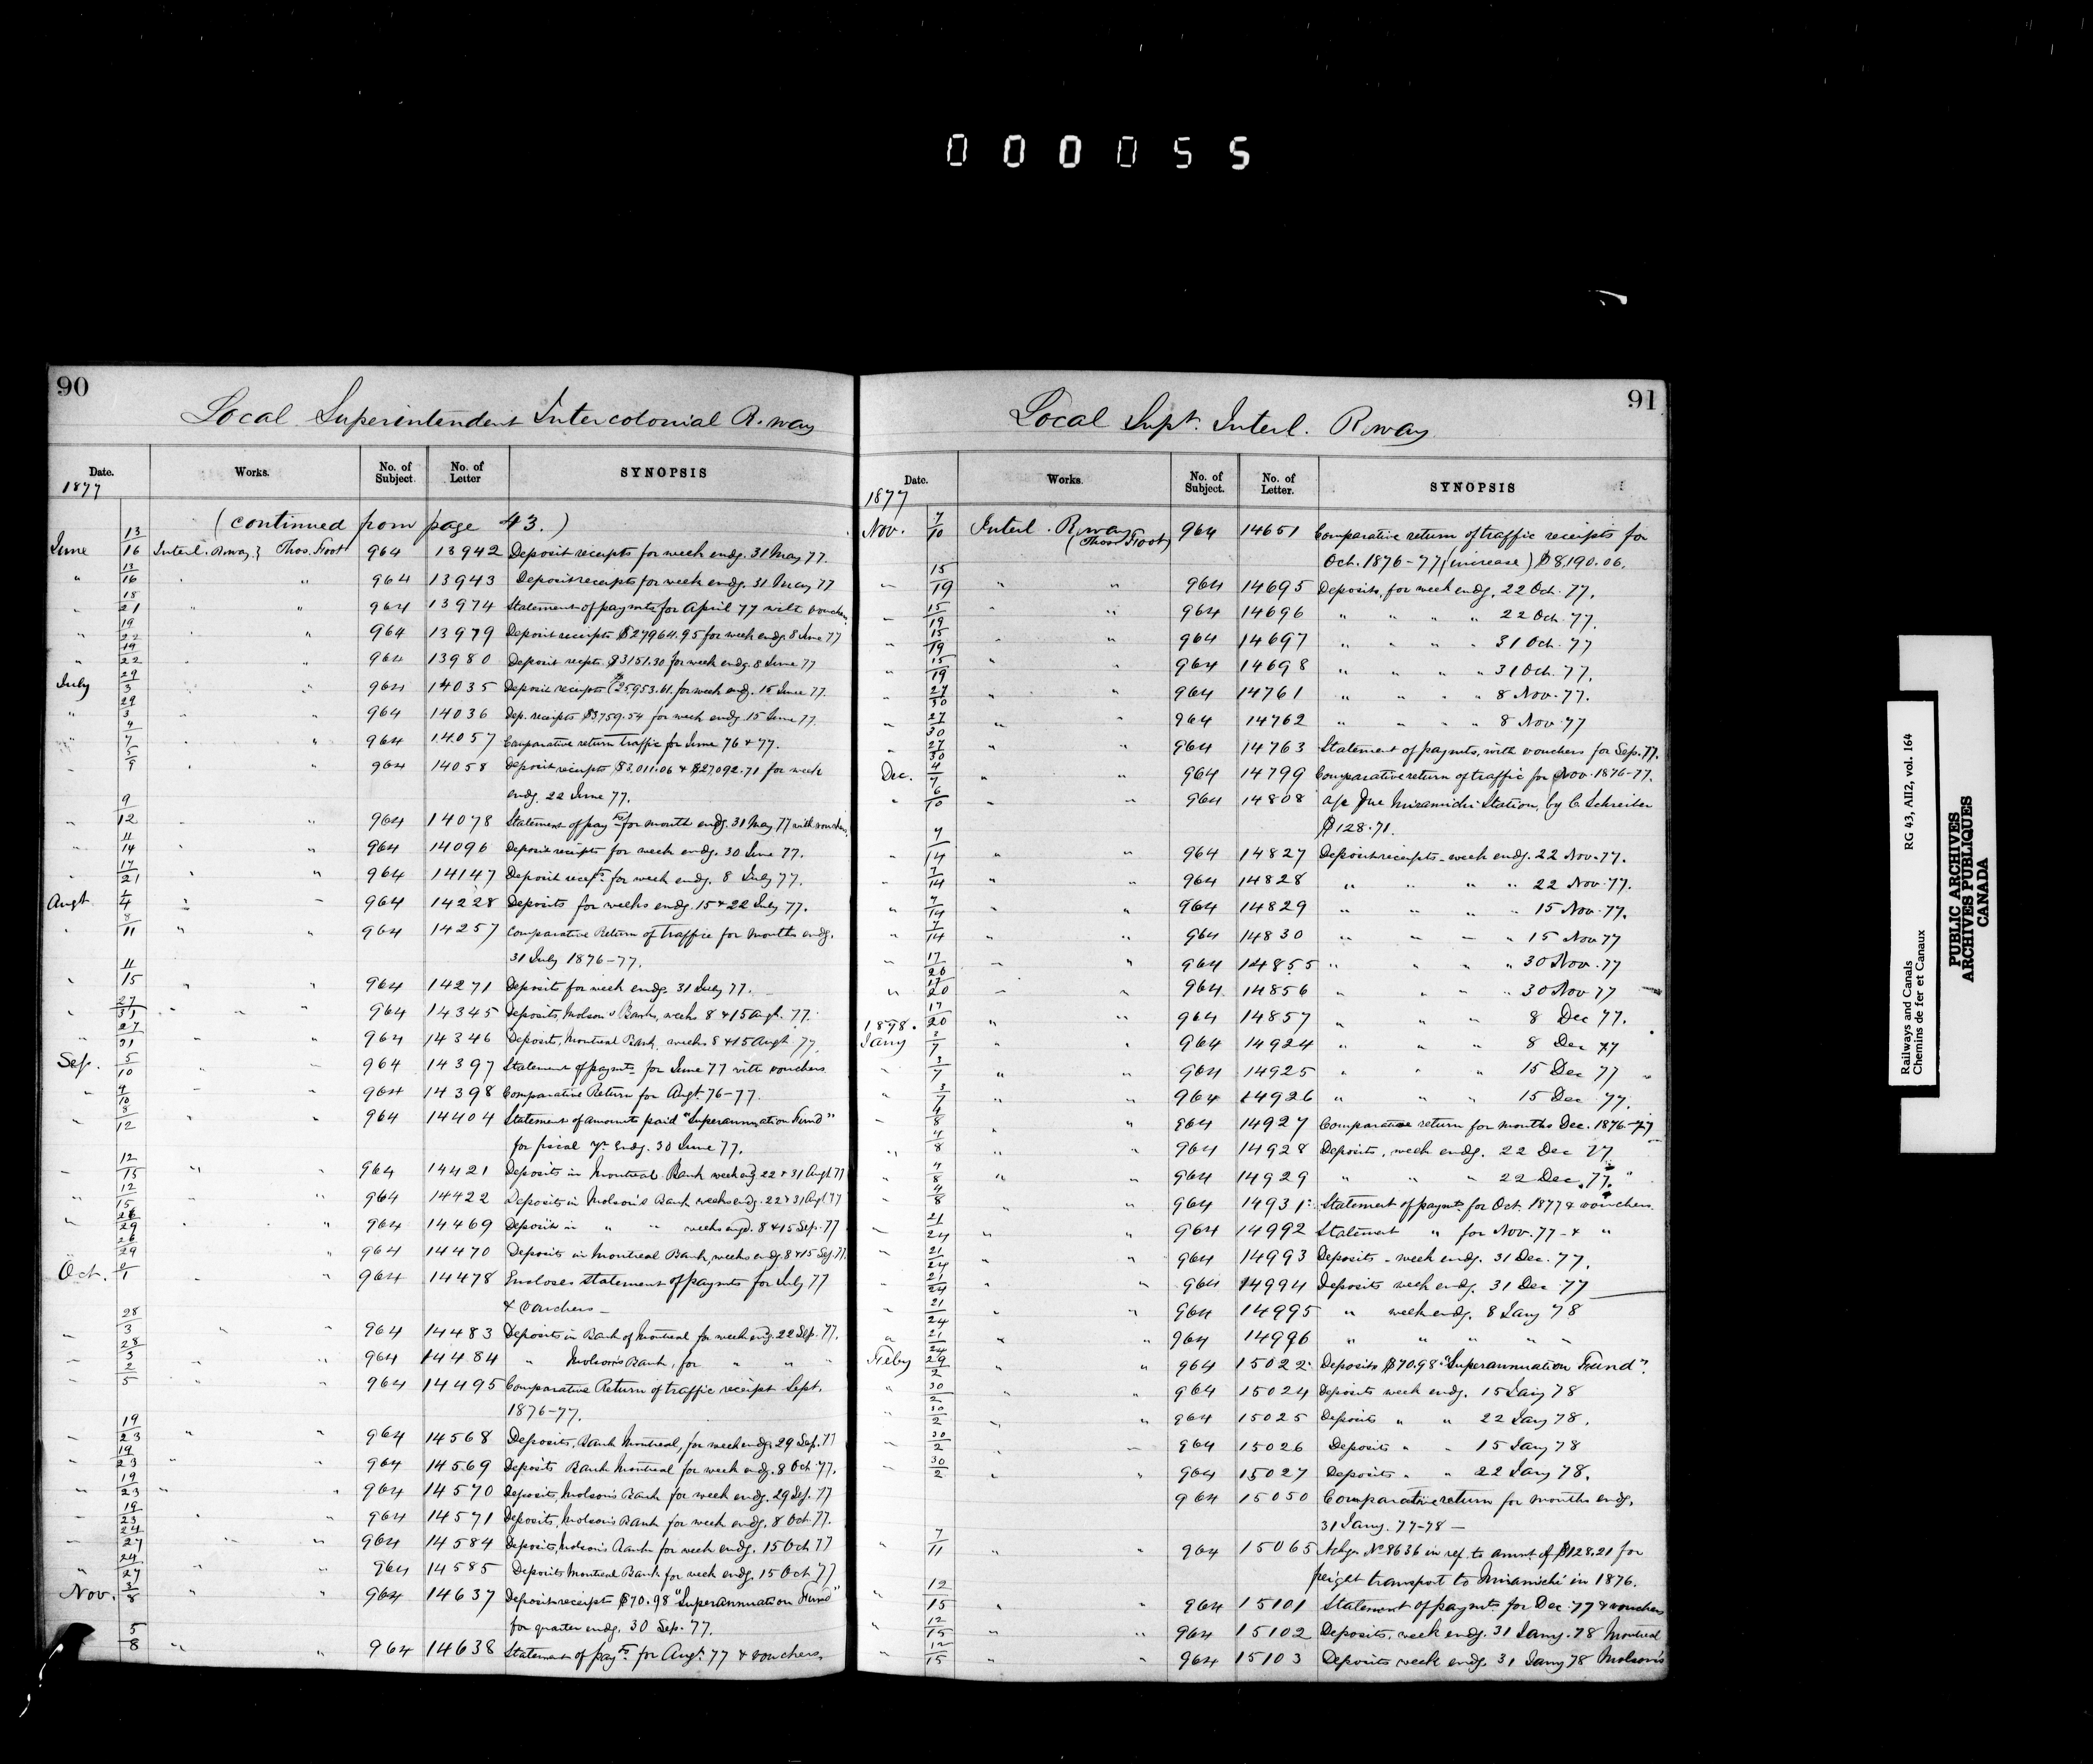 000055
90
Local Superintendent Intercolonial R.way
Date. Works. No. of Subject. No. of Letter SYNOPSIS
1877
(continued from page 43.)
June 13/16 Interl. R.way. Thos. Foot 964 13942 Deposit receipts for week endg. 31 May 77.
" 13/16 " " 964 13943 Deposit receipts for week endg. 31 May 77
" 18/21 " " 964 13974 Statement of paymts for April 77 with vouchers
" 19/22 " 964 13979 Deposit receipts $27964.95 for week endg. 8 June 77
" 19/22 " 964 13980 Deposit recpts. $3151.30 for week endg. 8 June 77
July 29/3 " " 964 14035 Deposit receipts $25953.61. for week endg. 15 June 77.
" 29/3 " " 964 14036 Dep. receipts $3759.54 for week endg. 15 June 77
" 4/7 " " 964 14057 Comparative return traffic for June 76 & 77.
" 5/9 " " 964 14058 Deposit receipts $3,011.06 & $27,092.71 for week
endg. 22 June 77.
" 9/12 " " 964 14078 Statement of paymts for month endg. 31 May 77 with vouchers,
" 11/14 " " 964 14096 Deposit receipts for week endg. 30 June 77.
" 17/21 " " 964 14147 Deposit recepts. for week endg. 8 July 77.
Augt 1/4 " " 964 14228 Deposits for weeks endg. 15 & 22 July 77.
" 8/11 " " 964 14257 Comparative Return of traffic for months endg.
31 July 1876-77.
" 11/15 " " 964 14271 Deposits for week endg. 31 July 77.
" 27/31 " " 964 14345 Deposits, Molson's Bank, weeks 8 & 15 Augt. 77.
" 27/31 " 964 14346 Deposits, Montreal Bank, weeks 8 & 15 Augt 77.
Sep. 5/10 " " 964 14397 Statement of paymts. for June 77 with vouchers
" 4/10 " " 964 14398 Comparative Return for Augt. 76-77.
" 8/12 " " 964 14404 Statement of amounts paid "Superannuation Fund"
for fiscal yr. Endg. 30 June 77.
" 12/15 " " 964 14421 Deposits in Montreal Bank week endg 22 & 31 Augt 77
" 12/15 " " 964 14422 Deposits in Molson's Bank weeks endg. 22 & 31 Augt 77
" 26/29 " " 964 14469 Deposits in " " weeks engd. 8 & 15 Sep. 77
26/29 " 964 14470 Deposits in Montreal Bank, weeks endg. 8 & 15 Sep. 77.
Oct. " " 964 14478 Encloses statement of paymts for July 77
& vouchers -
" 28/3 " " 964 14483 Deposits in Bank of Montreal for week endg. 22 Sep. 77.
" 28/3 " " 964 14484 " Molson's Bank, for " " "
" 2/5 " " 964 14495 Comparative Return of traffic receipt Sept.
1876-77.
" 19/23 " " 964 14568 Deposits, Bank Montreal, for week endg. 29 Sep. 77
" 19/23 " " 964 14569 Deposits Bank Montreal for week endg. 8 Oct. 77.
" 19/23 " " 964 14570 Deposits, Molson's Bank for week endg. 29 Sep. 77
" 19/23 " " 964 14571 Deposits, Molson's Bank for week endg. 8 Oct. 77.
" 24/27 " " 964 14584 Deposits, Molson's Bank for week endg. 15 Oct 77
" 24/27 " " 964 14585 Deposits Montreal Bank for week endg. 15 Oct 77
Nov. 3/8 " " 964 14637 Deposit receipt $70.98 "Superannuation Fund"
for quarter endg. 30 Sep. 77.
5/8 " " 964 14638 Statement of paymts. for Augt. 77 & vouchers.
91
Local Supt. Interl. R.way
Date. Works. No. of Subject. No. of Letter. SYNOPSIS
1877
Nov. 7/10 Interl. R.way (Thos. Foot) 964 14651 Comparative return of traffic receipts for
Oct. 1876-77 (increase) $8,190.06.
" 15/19 " " 964 14695 Deposits, for week endg. 22 Oct. 77.
" 15/19 " " 964 14696 " " " " 22 Oct. 77.
" 15/19 " " 964 14697 " " " 31 Oct. 77
" 15/19 " " 964 14698 " " " " 31 Oct. 77.
" 27/30 " " 964 14761 " " " " 8 Nov. 77.
" 27/30 " " 964 14762 " " " " 8 Nov. 77
" 27/30 " " 964 14763 Statement of paymts, with vouchers for Sep. 77.
Dec. 4/7 " " 964 14799 Comparative return of traffic for Nov. 1876-77.
" 6/10 " " 964 14808 a/c Due Miramichi Station, by C. Schreiber
$128.71.
" 7/14 " " 964 14827 Deposit receipts - week endg. 22 Nov. 77.
" 7/14 " " 964 14828 " " " " 22 Nov. 77.
" 7/14 " " 964 14829 " " " " 15 Nov. 77.
" 7/14 " " 964 14830 " " " " 15 Nov 77
" 17/20 " " 964 14855 " " " " 30 Nov. 77
" 17/20 " " 964 14856 " " " " 30 Nov 77
17/20 " " 964 14857 " " " 8 Dec 77.
1878.
Jany 3/7 " " 964 14924 " " " 8 Dec 77
" 3/7 " " 964 14925 " " " 15 Dec 77
" 3/7 " " 964 14926 " " " 15 Dec 77.
" 4/8 " " 964 14927 Comparative return for months Dec. 1876-77
" 4/8 " " 964 14928 Deposits, week endg. 22 Dec 77
" 4/8 " " 964 14929 " " " 22 Dec. 77. "
" 4/8 " " 964 14931 Statement of paymts for Oct. 1877 & vouchers.
" 21/24 " " 964 14992 Statement " for Nov. 77 - & "
" 21/24 " " 964 14993 Deposits - week endg. 31 Dec. 77.
" 21/24 " " 964 14994 Deposits week endg. 31 Dec. 77
" 21/24 " " 964 14995 " week endg. 8 Jany 78
" 21/24 " " 964 14996 " " " " "
Feby 29/2 " " 964 15022 Deposits $70.98 "Superannuation Fund".
" 30/2 " " 964 15024 Deposits week endg. 15 Jany 78
" 30/2 " " 964 15025 Deposits " " 22 Jany 78.
" 30/2 " " 964 15026 Deposits " " 15 Jany 78
" 30/2 " " 964 15027 Deposits " " 22 Jany 78.
964 15050 Comparative return for months endg.
31 Jany. 77-78 -
" 7/11 " " 964 15065 No. 8636 in ref. to amnt. of $128.21 for
freight transport to Miramichi in 1876.
" 12/15 " " 964 15101 Statement of paymts. for Dec. 77 & vouchers
" 12/15 " " 964 15102 Deposits, week endg. 31 Jany. 78 Montreal
" 12/15 " " 964 15103 Deposits week endg. 31 Jany 78 Molson's
Railways and Canals RG 43, AII2, vol. 164
Chemins de fer et Canaux
PUBLIC ARCHIVES
ARCHIVES PUBLIQUES
CANADA